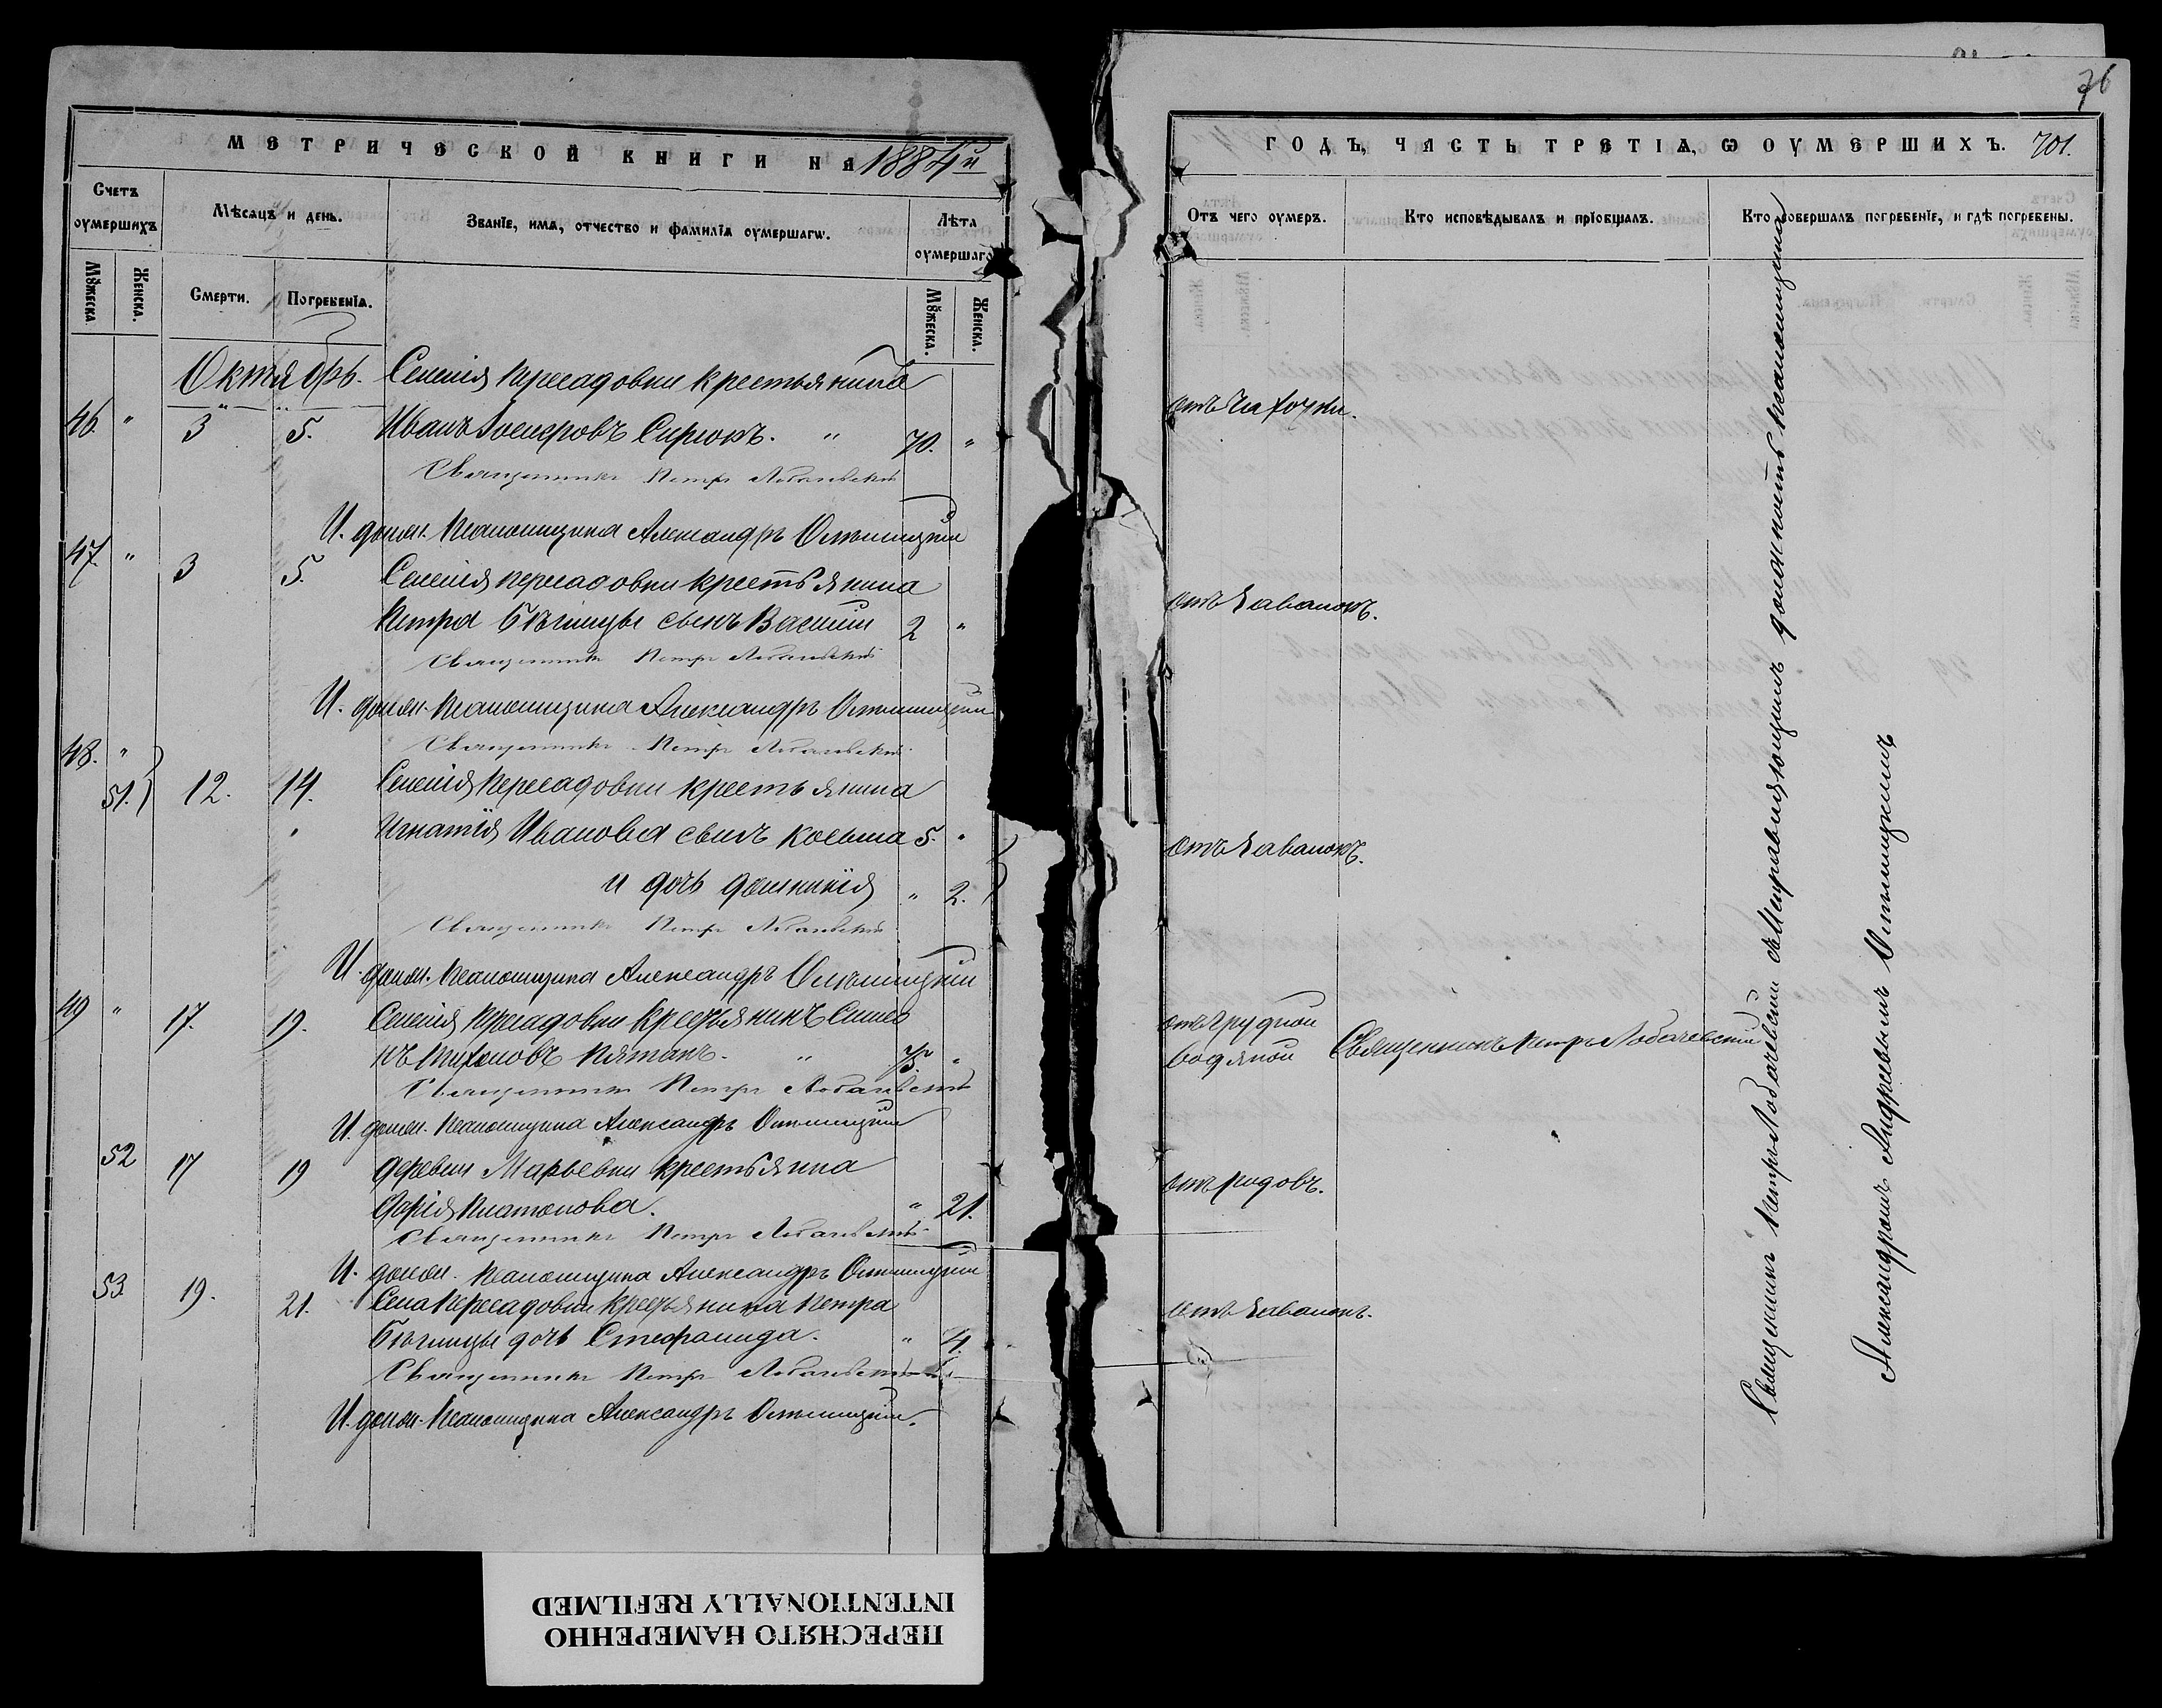 МЕТРИЧЕСКОЙ КНИГИ НА 1884й
Счетъ оумершихъ
Мѣсяцъ и день.
Званіе, имя, отчество и фамилія оумершагѡ.
Лѣта оумершаго
Мꙋжеска.
Женска.
Смерти.
Погребенія.
Мꙋжеска.
Женска.
Октябрь. Селенія Пересадовки крестьянинъ
46. " 3 5. Иванъ Сирюкъ. " 70. "
Священникъ Петръ Лобачевскій
И. должн. псаломщика Александръ
47. " 3 5. Селенія Пересадовки крестьянина
Петра Бѣглицы сынъ Василій 2 "
Священникъ Петръ Лобачевскій
И. должн. псаломщика Александръ
Священникъ Петръ Лобачевскій
48. "
51. 12. 14. Селенія Пересадовки крестьянина
Игнатія Иванова сынъ Косьма 5. "
и дочь " 2.
Священникъ Петръ Лобачевскій
И. должн. псаломщика Александръ
49 " 17. 19. Селенія Пересадовки крестьянинъ Симео
нъ Тихоновъ Пятакъ. " 73. "
Священникъ Петръ Лобачевскій
И. должн. псаломщика Александръ
52 17 19 Деревни Марьевки крестьянка
Дарія Платонова. " 21.
Священникъ Петръ Лобачевскій
И. должн. псаломщика Александръ
53. 19. 21. Села Пересадовки крестьянина Петра
Бѣглицы дочь Стефанида. " 4.
Священникъ Петръ Лобачевскій
И. должн. псаломщика Александръ
76
ГОДЪ, ЧАСТЬ ТРЕТІЯ, Ѡ ОУМЕРШИХЪ. 701.
Отъ чего оумеръ.
Кто исповѣдывалъ и пріобщалъ.
Кто совершалъ погребеніе, и гдѣ погребены.
отъ чахотки.
отъ
отъ
отъ грудной
водяной
Священникъ Петръ Лобачевскій
отъ родовъ.
отъ
Священникъ Петръ Лобачевскій съ исправляющимъ должность псаломщика
Александромъ Андреевымъ
ПЕРЕСНЯТО НАМЕРЕННО
INTENTIONALLY REFILMED